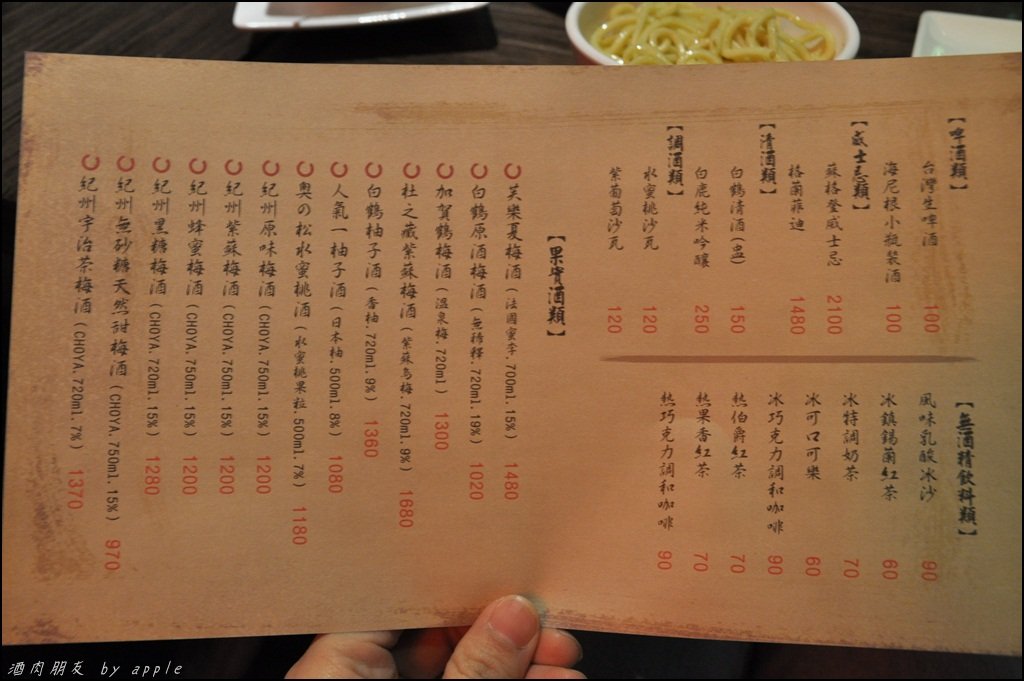 【啤酒類】
台灣生啤酒 100
海尼根小瓶裝酒 100
【威士忌類】
蘇格登威士忌 2100
格蘭菲迪 1480
【清酒類】
白鶴清酒(盅) 150
白鹿純米吟釀 250
【調酒類】
水蜜桃沙瓦 120
紫葡萄沙瓦 120
【無酒精飲料類】
風味乳酸冰沙 90
冰鎮錫蘭紅茶 60
冰特調奶茶 70
冰可口可樂 60
冰巧克力調和咖啡 90
熱伯爵紅茶 70
熱果香紅茶 70
熱巧克力調和咖啡 90
【果實酒類】
芙樂夏梅酒(法國蜜李.700ml.15%) 1480
白鶴原酒梅酒(無稀釋.720ml.19%) 1020
加賀鶴梅酒(溫泉梅.720ml) 1300
杜之藏紫蘇梅酒(紫蘇烏梅.720ml.9%) 1680
白鶴柚子酒(香柚.720ml.9%) 1360
人氣一柚子酒(日本柚.500ml.8%) 1080
奧の松水蜜桃酒(水蜜桃果粒.500ml.7%) 1180
紀州原味梅酒(CHOYA.750ml.15%) 1200
紀州紫蘇梅酒(CHOYA.750ml.15%) 1200
紀州蜂蜜梅酒(CHOYA.750ml.15%) 1200
紀州黑糖梅酒(CHOYA.720ml.15%) 1280
紀州無砂糖天然甜梅酒(CHOYA.750ml.15%) 970
紀州宇治茶梅酒(CHOYA.720ml.7%) 1370
酒肉朋友 by apple